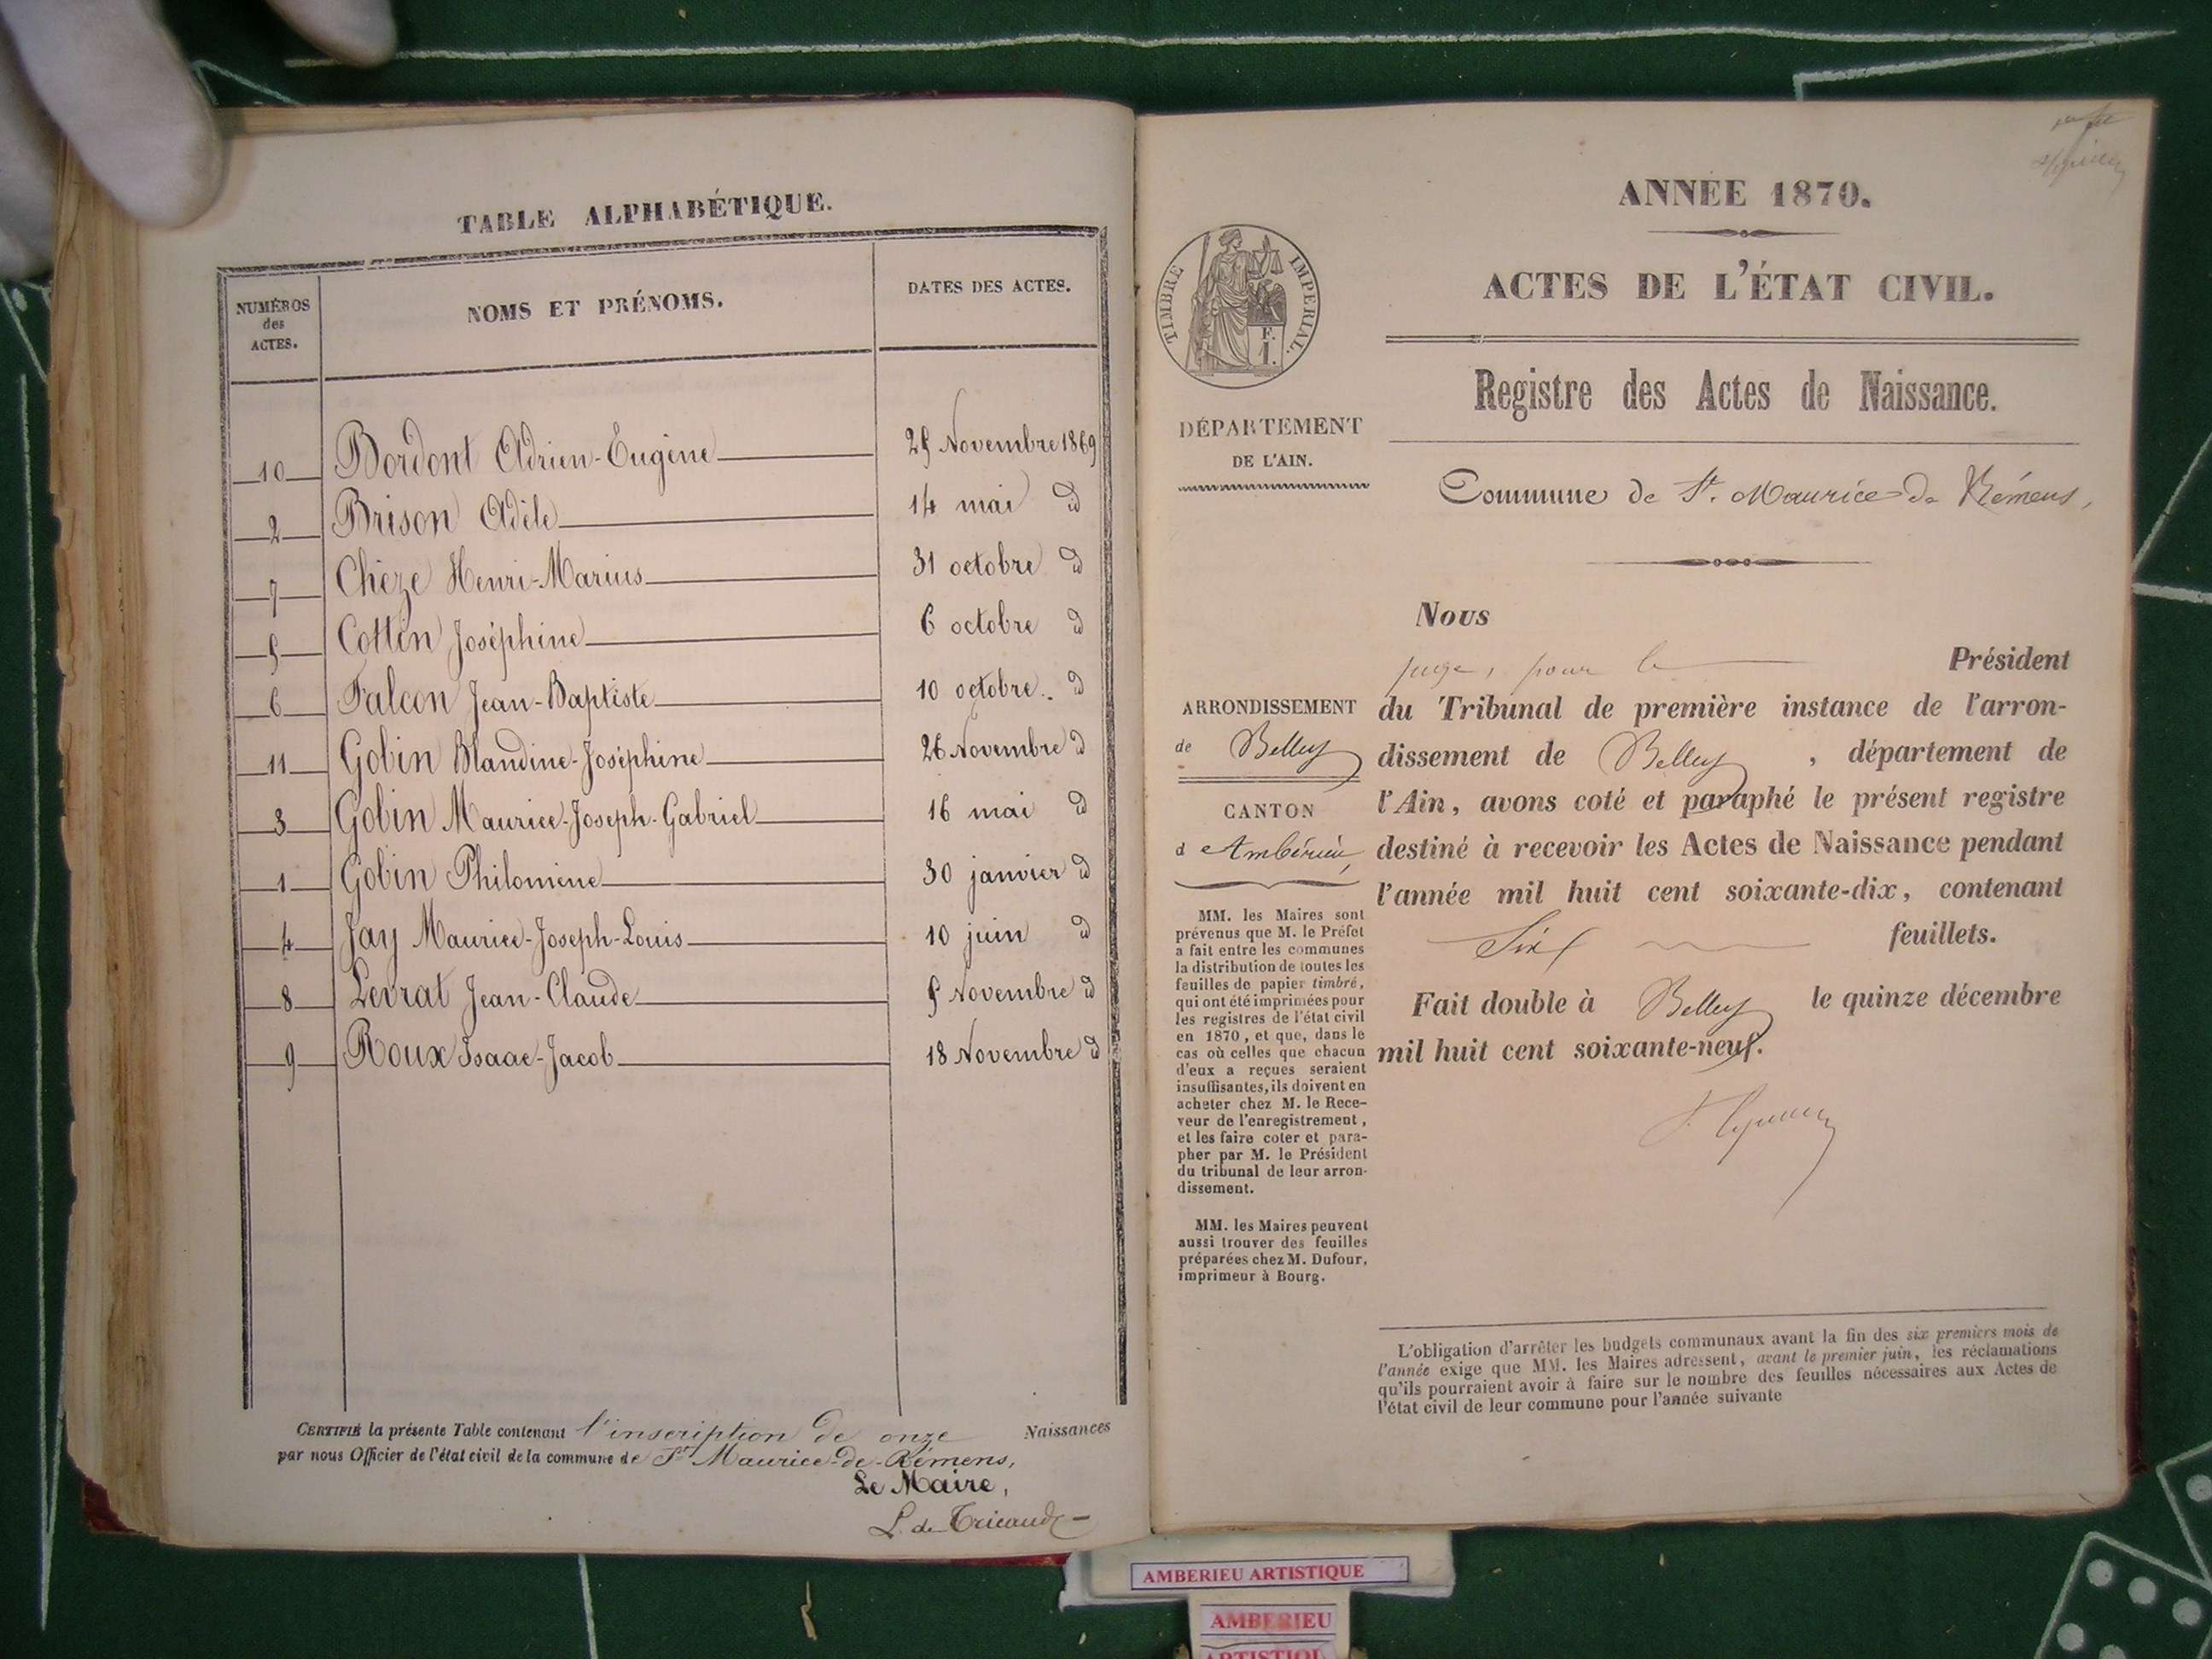 TABLE ALPHABÉTIQUE.
NUMÉROS
des
ACTES.
NOMS ET PRÉNOMS.
DATES DES ACTES.
10 Bordont Adrien-Eugène 25 Novembre 1869
2 Brison Adèle 14 mai id
7 Chèze Henri-Marius 31 octobre id
5 Cottin Joséphine 6 octobre id
6 Falcon Jean-Baptiste 10 octobre id
11 Gobin Blandine-Joséphine 26 Novembre id
3 Gobin Maurice-Joseph-Gabriel 16 mai id
1 Gobin Philomène 30 janvier id
4 Jay Maurice-Joseph-Louis 10 juin id
8 Levrat Jean-Claude 5 Novembre id
9 Roux Isaac-Jacob 18 Novembre id
CERTIFIÉ la présente Table contenant l'inscription de onze Naissances
par nous Officier de l'état civil de la commune de St Maurice-de-Rémens,
Le Maire,
L. de Tricaud
ANNÉE 1870.
ACTES DE L'ÉTAT CIVIL.
TIMBRE IMPERIAL.
F.
1.
Registre des Actes de Naissance.
DÉPARTEMENT
DE L'AIN.
Commune de St. Maurice-de Rémens,
ARRONDISSEMENT
de Belley
CANTON
d'Ambérieu
MM. les Maires sont
prévenus que M. le Préfet
a fait entre les communes
la distribution de toutes les
feuilles de papier timbré,
qui ont été imprimées pour
les registres de l'état civil
en 1870, et que, dans le
cas où celles que chacun
d'eux a reçues seraient
insuffisantes, ils doivent en
acheter chez M. le Rece-
veur de l'enregistrement,
et les faire coter et para-
pher par M. le Président
du tribunal de leur arron-
dissement.
MM. les Maires peuvent
aussi trouver des feuilles
préparées chez M. Dufour,
imprimeur à Bourg.
Nous
juge, pour le Président
du Tribunal de première instance de l'arron-
dissement de Belley, département de
l'Ain, avons coté et paraphé le présent registre
destiné à recevoir les Actes de Naissance pendant
l'année mil huit cent soixante-dix, contenant
Six feuillets.
Fait double à Belley le quinze décembre
mil huit cent soixante-neuf.
L'obligation d'arrêter les budgets communaux avant la fin des six premiers mois de
l'année exige que MM. les Maires adressent, avant le premier juin, les réclamations
qu'ils pourraient avoir à faire sur le nombre des feuilles nécessaires aux Actes de
l'état civil de leur commune pour l'année suivante
AMBERIEU ARTISTIQUE
AMBERIEU
ARTISTIQU